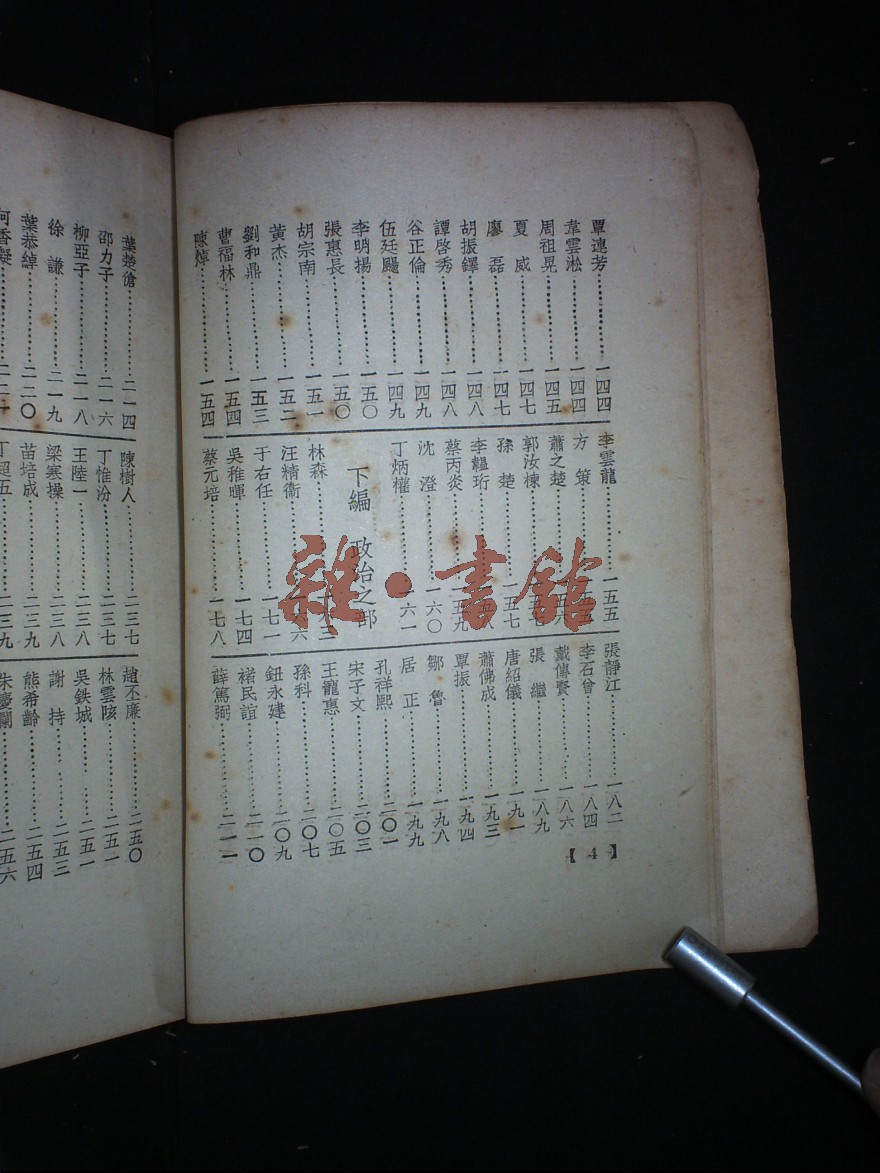 覃連芳………一四四
韋雲淞………一四四
周祖晃………一四五
夏威………一四七
廖磊………一四七
胡振鐸………一四八
譚啓秀………一四八
谷正倫………一四九
伍廷颺………一四九
李明揚………一五〇
張惠長………一五〇
胡宗南………一五一
黃杰………一五二
劉和鼎………一五三
曹福林………一五四
陳焯………一五四
李雲龍………一五五
方策………
蕭之楚………
郭汝棟………
孫楚………一五七
李韞珩………
蔡丙炎………一五九
沈澄………一六〇
丁炳權………一六一
下編 政治之部
林森………
汪精衞………一六六
于右任………一七一
吳稚暉………一七四
蔡元培………一七八
張靜江………一八二
李石曾………一八四
戴傳賢………一八六
張繼………一八九
唐紹儀………一九一
蕭佛成………一九三
覃振………一九四
鄒魯………一九八
居正………一九九
孔祥熙………二〇一
宋子文………二〇三
王寵惠………二〇五
孫科………二〇七
鈕永建………二〇九
褚民誼………二一〇
薛篤弼………二一一
【4】
葉楚傖………二一四
邵力子………二一六
柳亞子………二一八
徐謙………二一九
葉恭綽………二二〇
何香凝………
陳樹人………二三七
丁惟汾………二三七
王陸一………二三八
梁寒操………二三八
苗培成………二三九
丁超五………二三九
趙丕廉………二五〇
林雲陔………二五一
吳鉄城………二五一
謝持………二五三
熊希齡………二五四
朱慶瀾………二五六
雜·書館